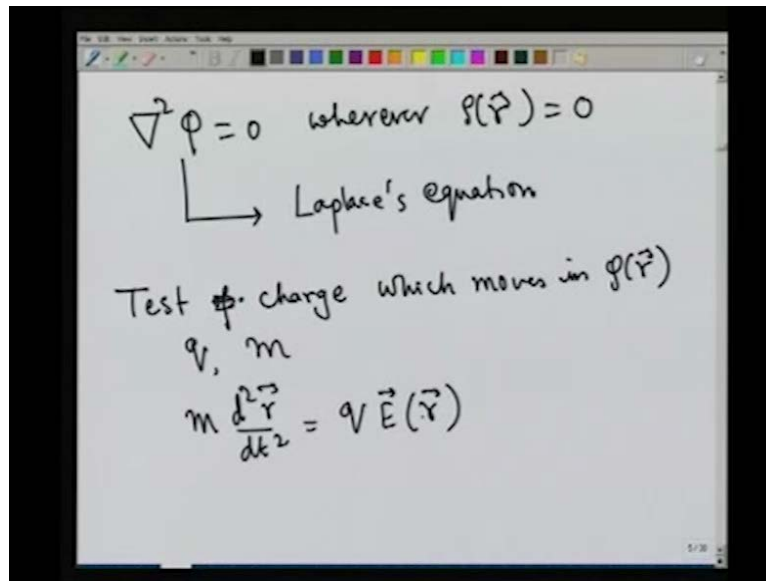 File Edit View Insert Actions Tools Help
∇²φ = 0 wherever ρ(r⃗) = 0
Laplace's equation
Test charge which moves in φ(r⃗)
q, m
m d²r⃗/dt² = q E⃗(r⃗)
5/30